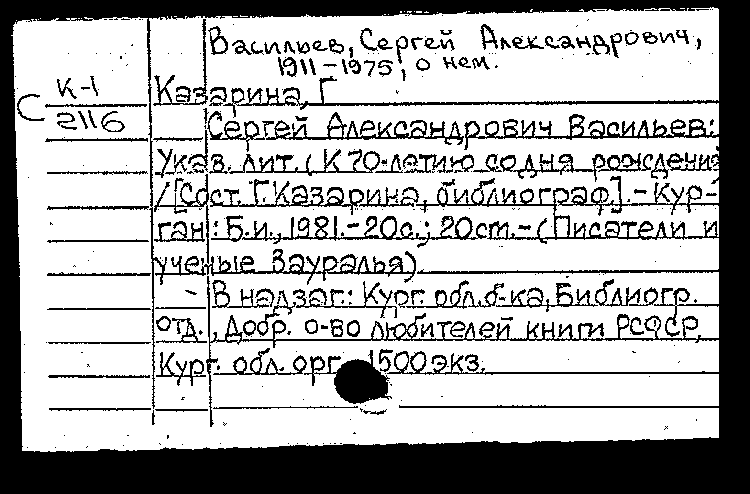 Васильев, Сергей Александрович,
1911-1975, о нем.
К-1
Казарина, Г
С
2116
Сергей Александрович Васильев:
Указ. лит. (К 70-летию со дня рождения)
/[Сост. Г. Казарина, библиограф.].-Кур-
ган: Б.и., 1981.-20с.; 20см.-(Писатели и
ученые Зауралья)
- В надзаг.: Кург. обл. б-ка, Библиогр.
отд., Добр. о-во любителей книги РСФСР,
Кург. обл. орг. 1500 экз.